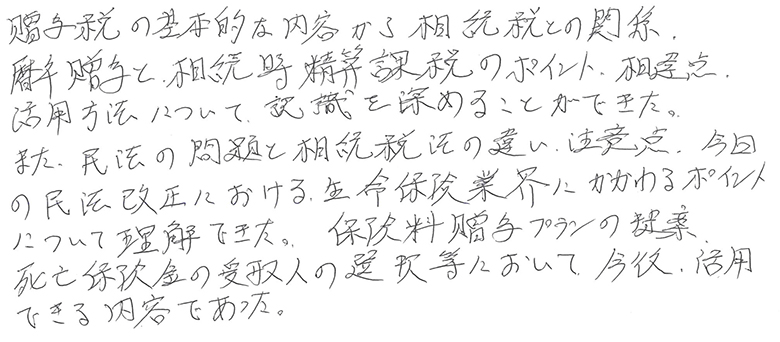 贈与税の基本的な内容から相続税との関係、
暦年贈与と、相続時精算課税のポイント、相違点、
活用方法について、認識を深めることができた。
また、民法の問題と相続税法の違い、注意点、今回
の民法改正における、生命保険業界にかかわるポイント
について理解できた。保険料贈与プランの提案、
死亡保険金の受取人の選択等において、今後、活用
できる内容であった。